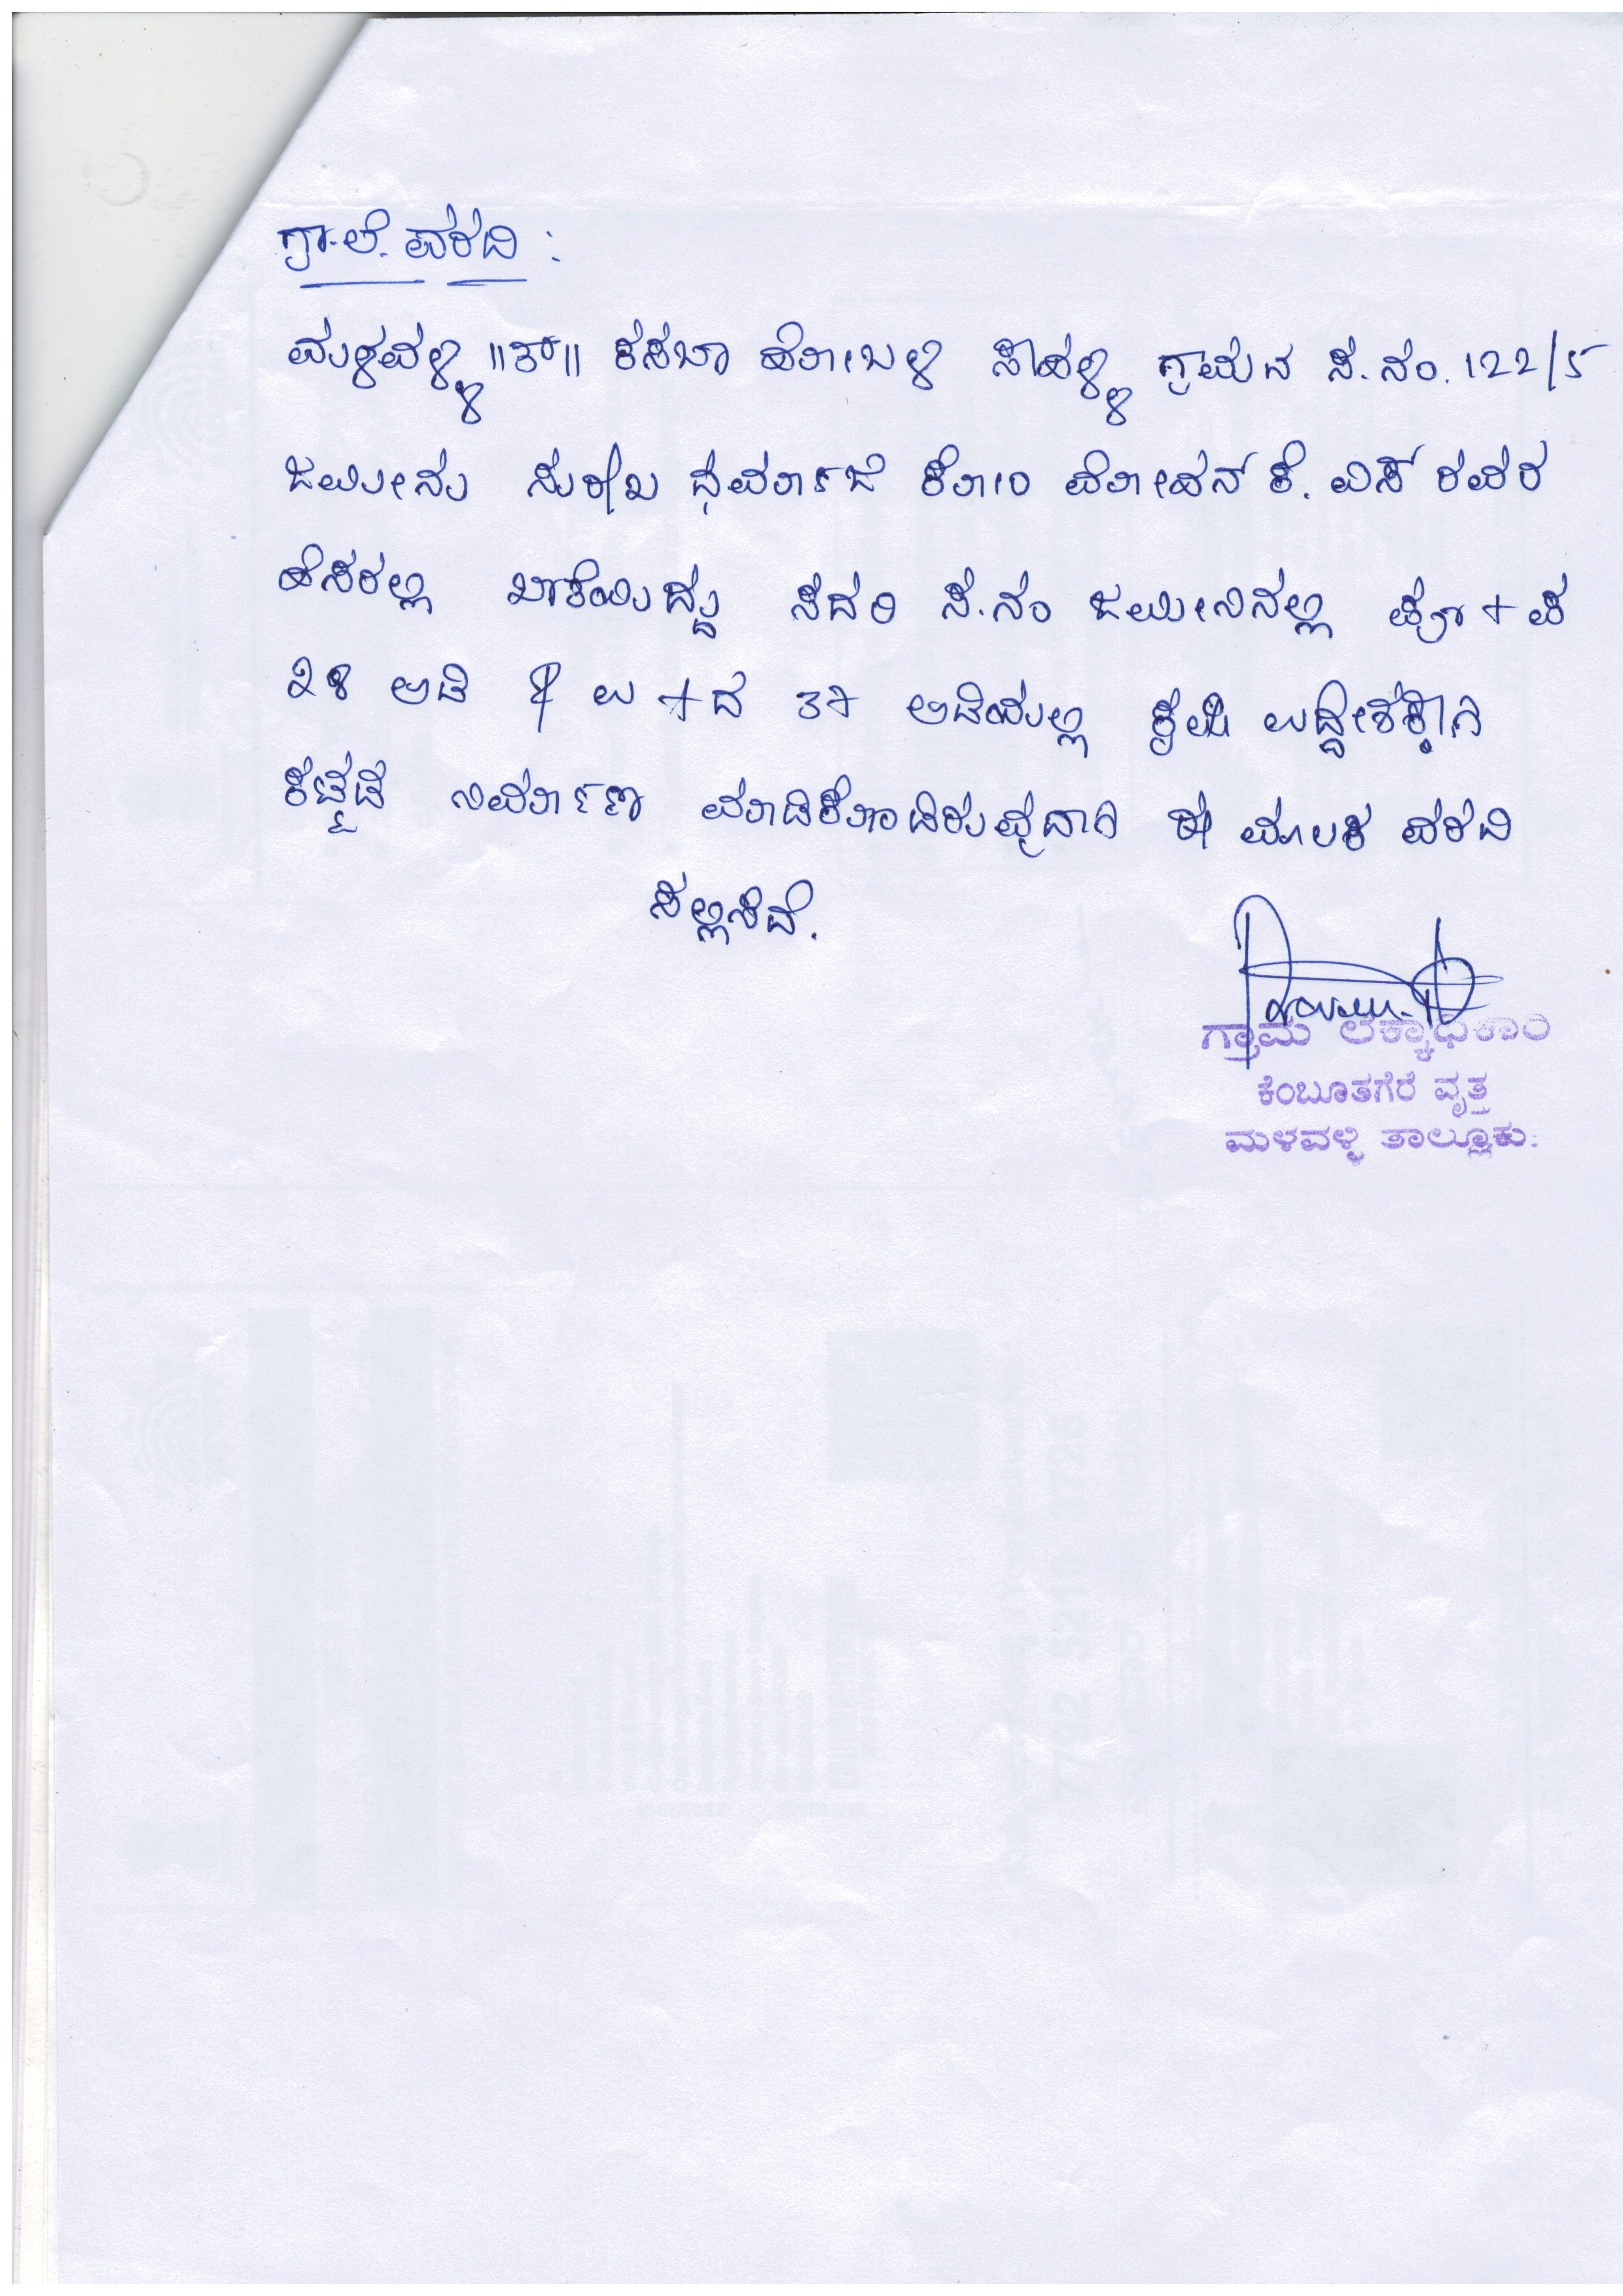 ಗ್ರಾ.ಲೆ. ವರದಿ :
ಮಳವಳ್ಳಿ ||ತಾ|| ಕಸಬಾ ಹೋಬಳಿ ಸಾಹಳ್ಳಿ ಗ್ರಾಮದ ಸ.ನಂ. 122/5
ಜಮೀನು ಸುರೇಖ ಧರ್ಮರಾಜೆ ಕೋಂ ಮೋಹನ್ ಕೆ. ಎಸ್ ರವರ
ಹೆಸರಲ್ಲಿ ಖಾತೆಯಿದ್ದು ಸದರಿ ಸ.ನಂ ಜಮೀನಿನಲ್ಲಿ ಪೂ + ಪ
28 ಅಡಿ & ಉ + ದ 37 ಅಡಿಯಲ್ಲಿ ಕೃಷಿ ಉದ್ದೇಶಕ್ಕಾಗಿ
ಕಟ್ಟಡ ನಿರ್ಮಾಣ ಮಾಡಿಕೊಂಡಿರುವುದಾಗಿ ಈ ಮೂಲಕ ವರದಿ
ಸಲ್ಲಿಸಿದೆ.
ಗ್ರಾಮ ಲೆಕ್ಕಾಧಿಕಾರಿ
ಕೆಂಬೂತಗೆರೆ ವೃತ್ತ
ಮಳವಳ್ಳಿ ತಾಲ್ಲೂಕು.